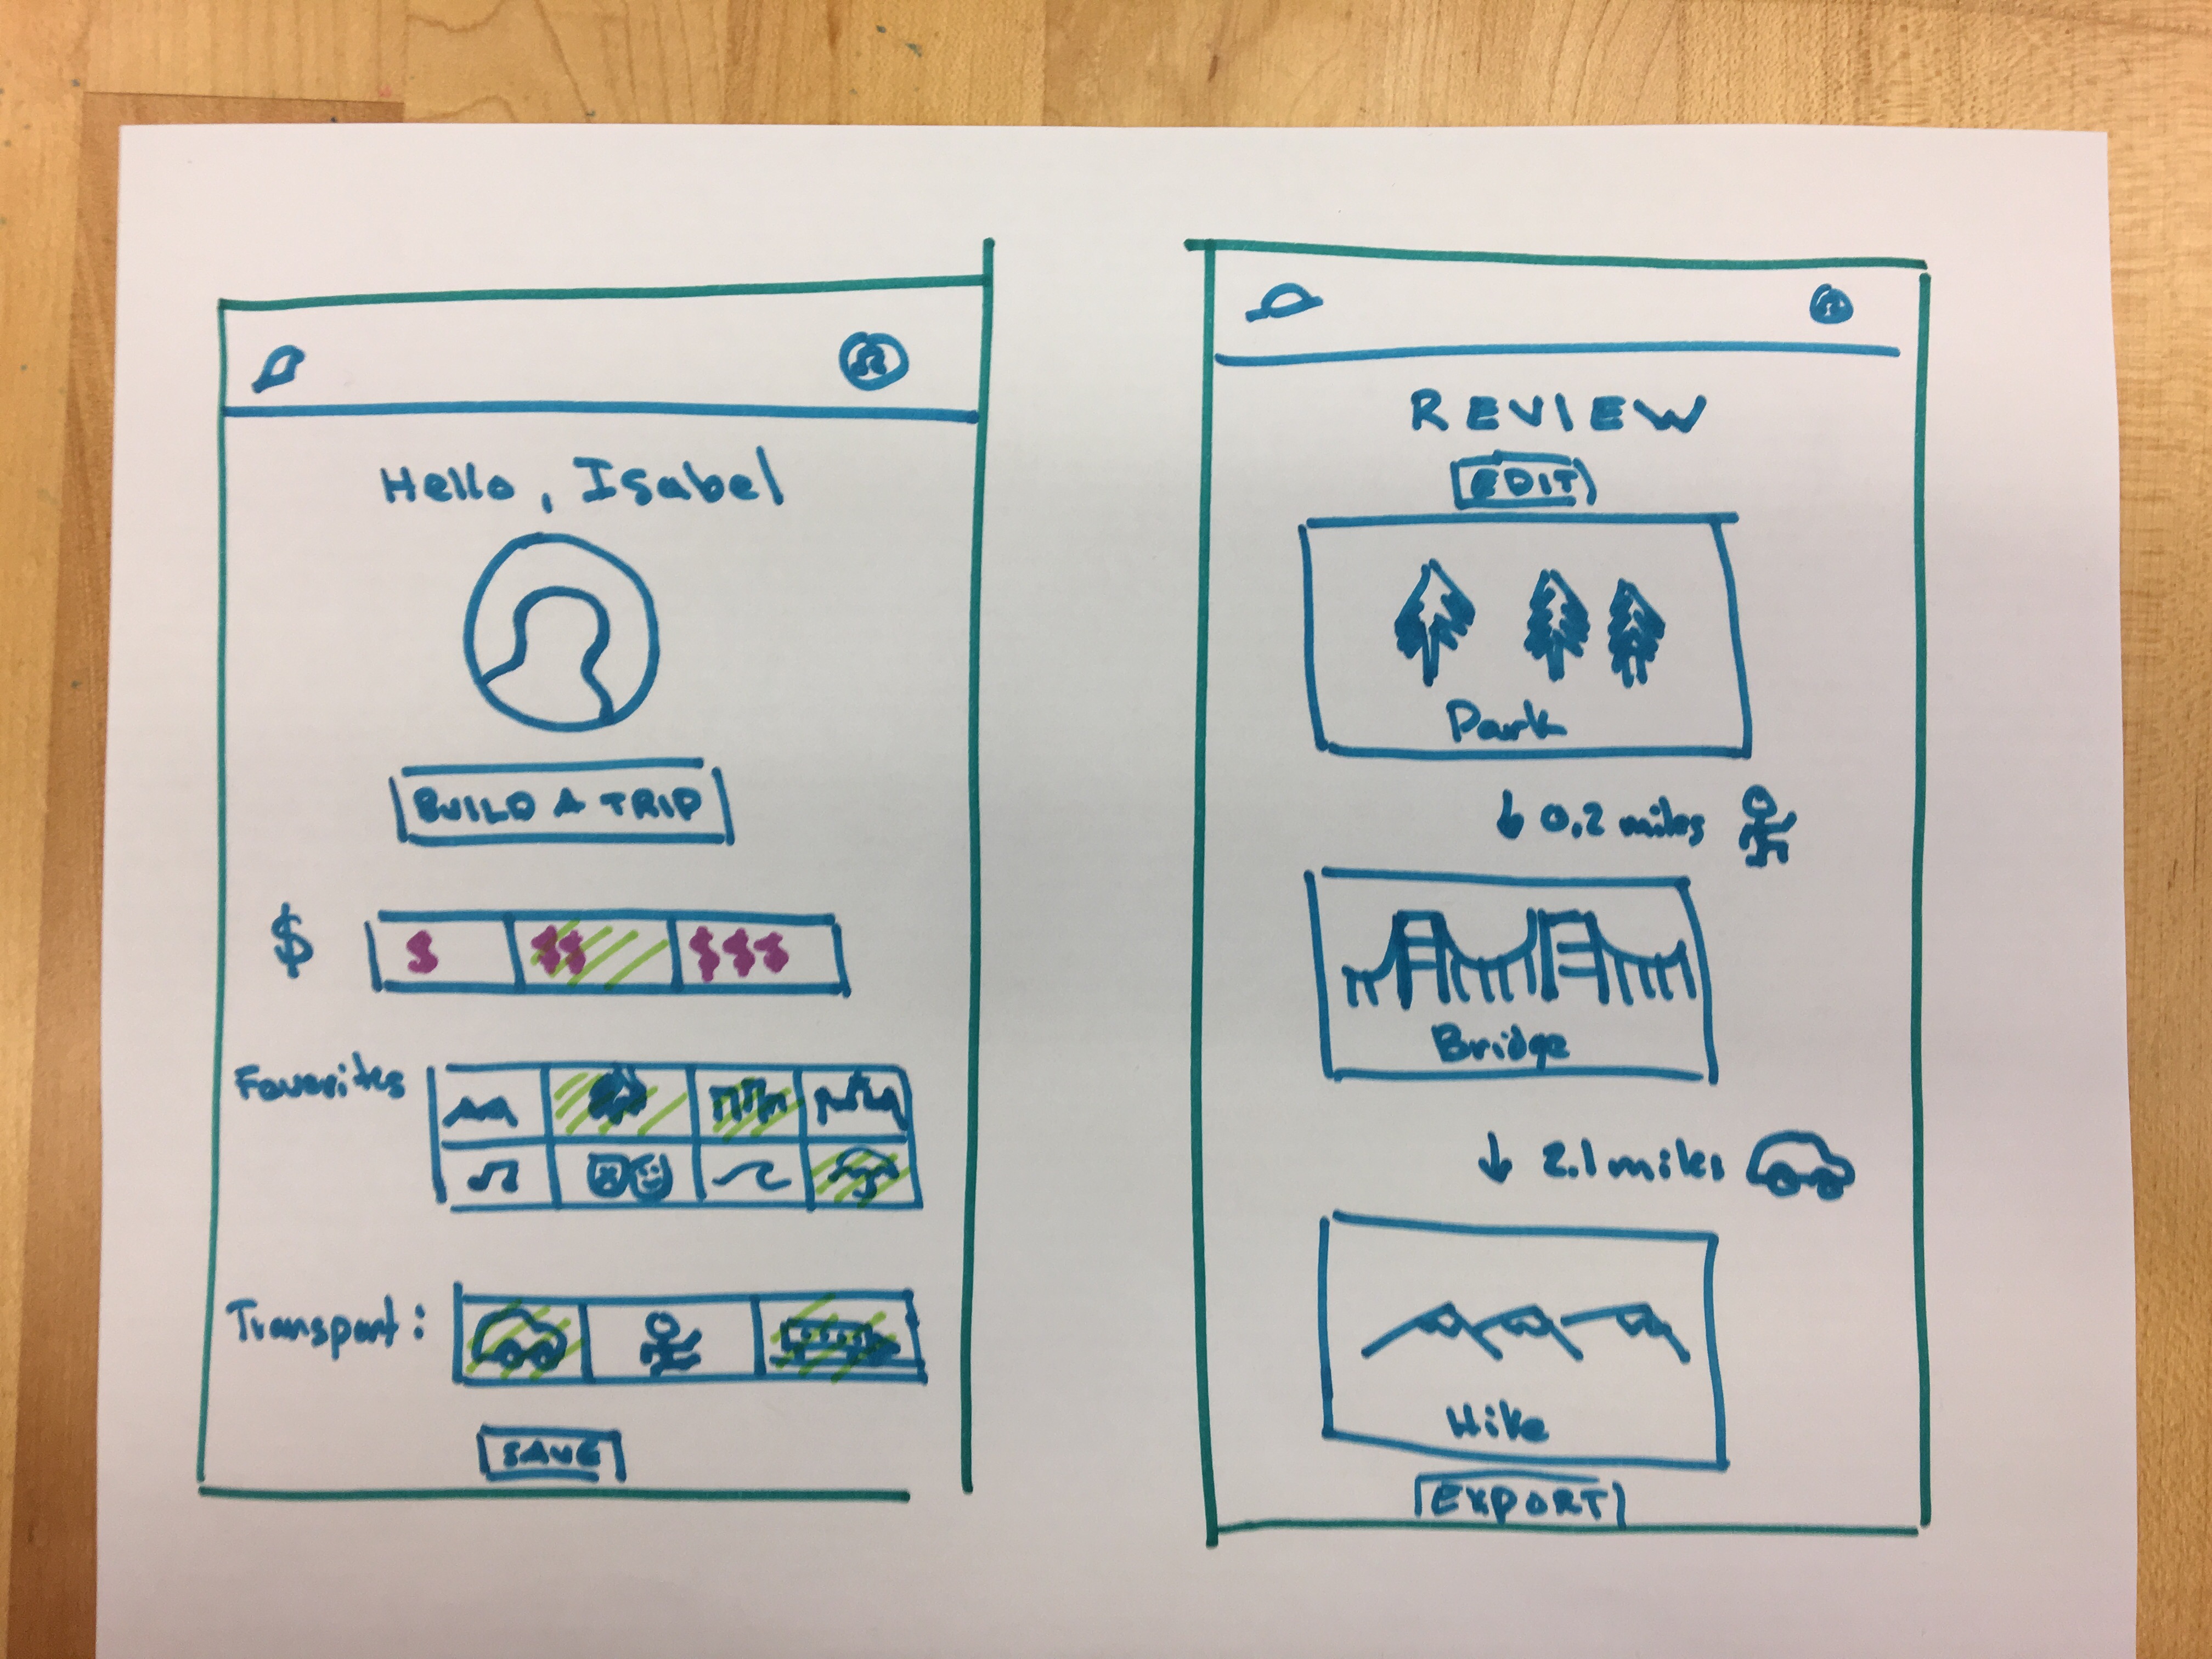 Hello, Isabel
BUILD A TRIP
$ $ $$ $$$
Favorites
Transport:
SAVE
REVIEW
EDIT
Park
↓ 0.2 miles
Bridge
↓ 2.1 miles
Hike
EXPORT